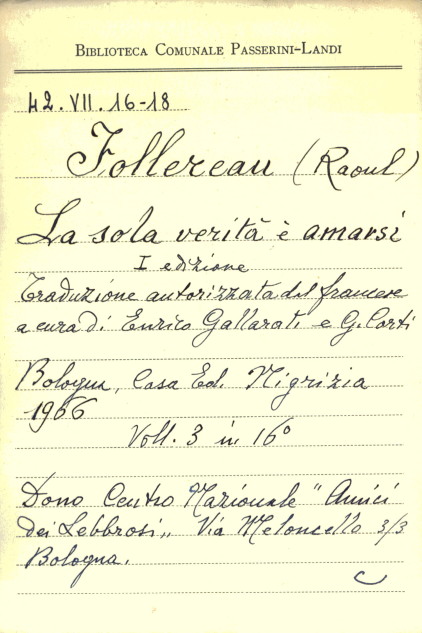 BIBLIOTECA COMUNALE PASSERINI-LANDI
42.VII.16-18
Follereau (Raoul)
La sola verità è amarsi
I edizione
Traduzione autorizzata dal francese
a cura di Enrico Gallarati e G. Corti
Bologna, Casa Ed. Nigrizia
1966
Voll. 3 in 16°
Dono Centro Nazionale "Amici
dei Lebbrosi„ Via Meloncello 3/3
Bologna.